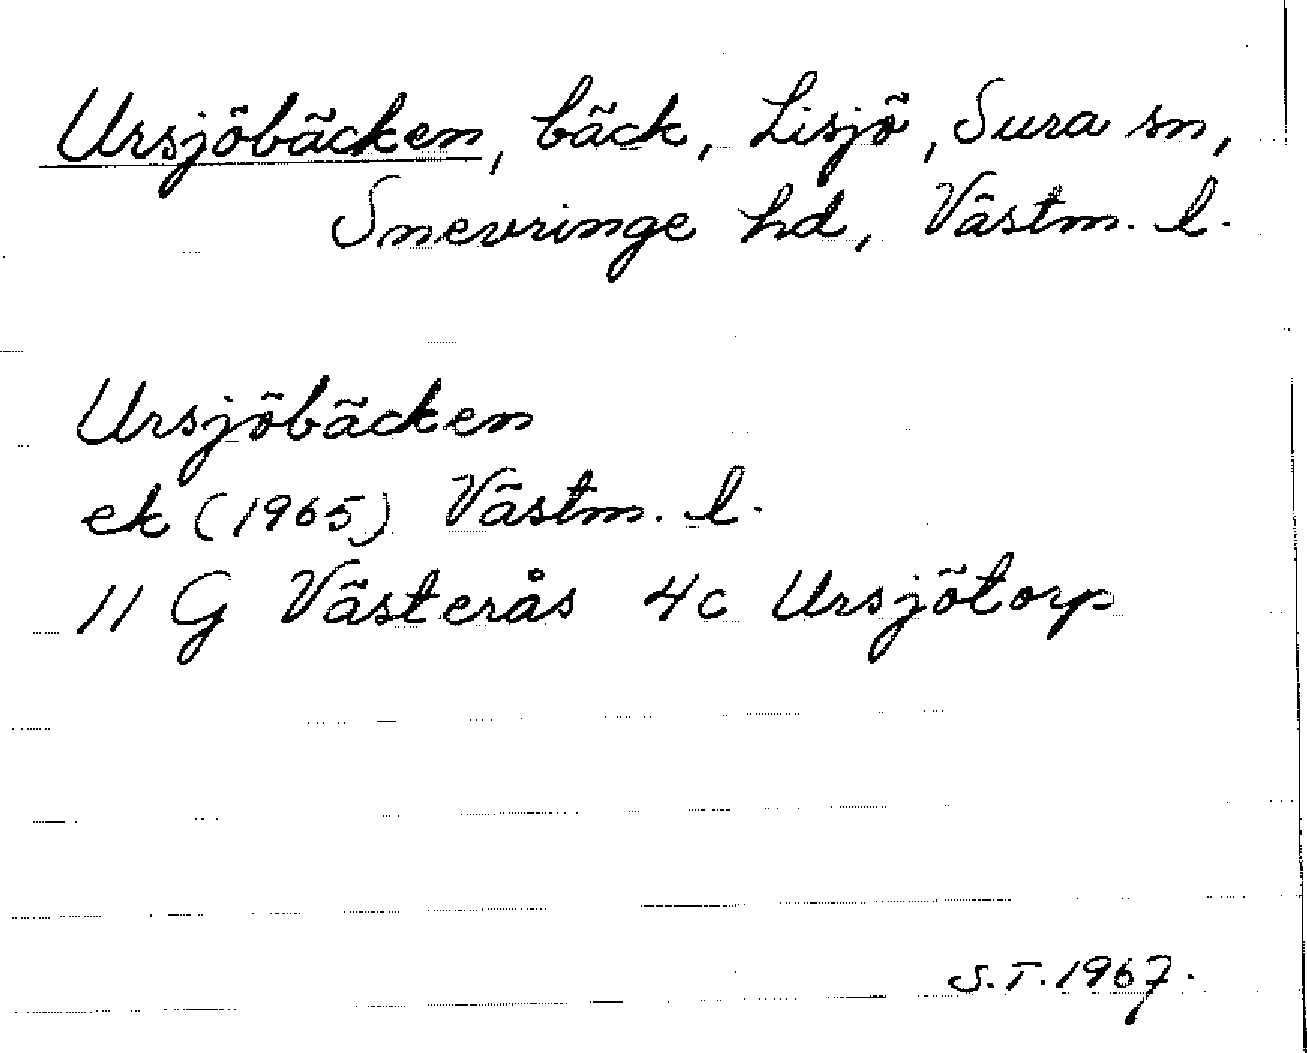 Ursjöbäcken, bäck, Lisjö, Sura sn,
Snevringe hd, Västm. l.
Ursjöbäcken
ek (1965) Västm. l.
11 G Västerås 4c Ursjötorp
S.T. 1967.